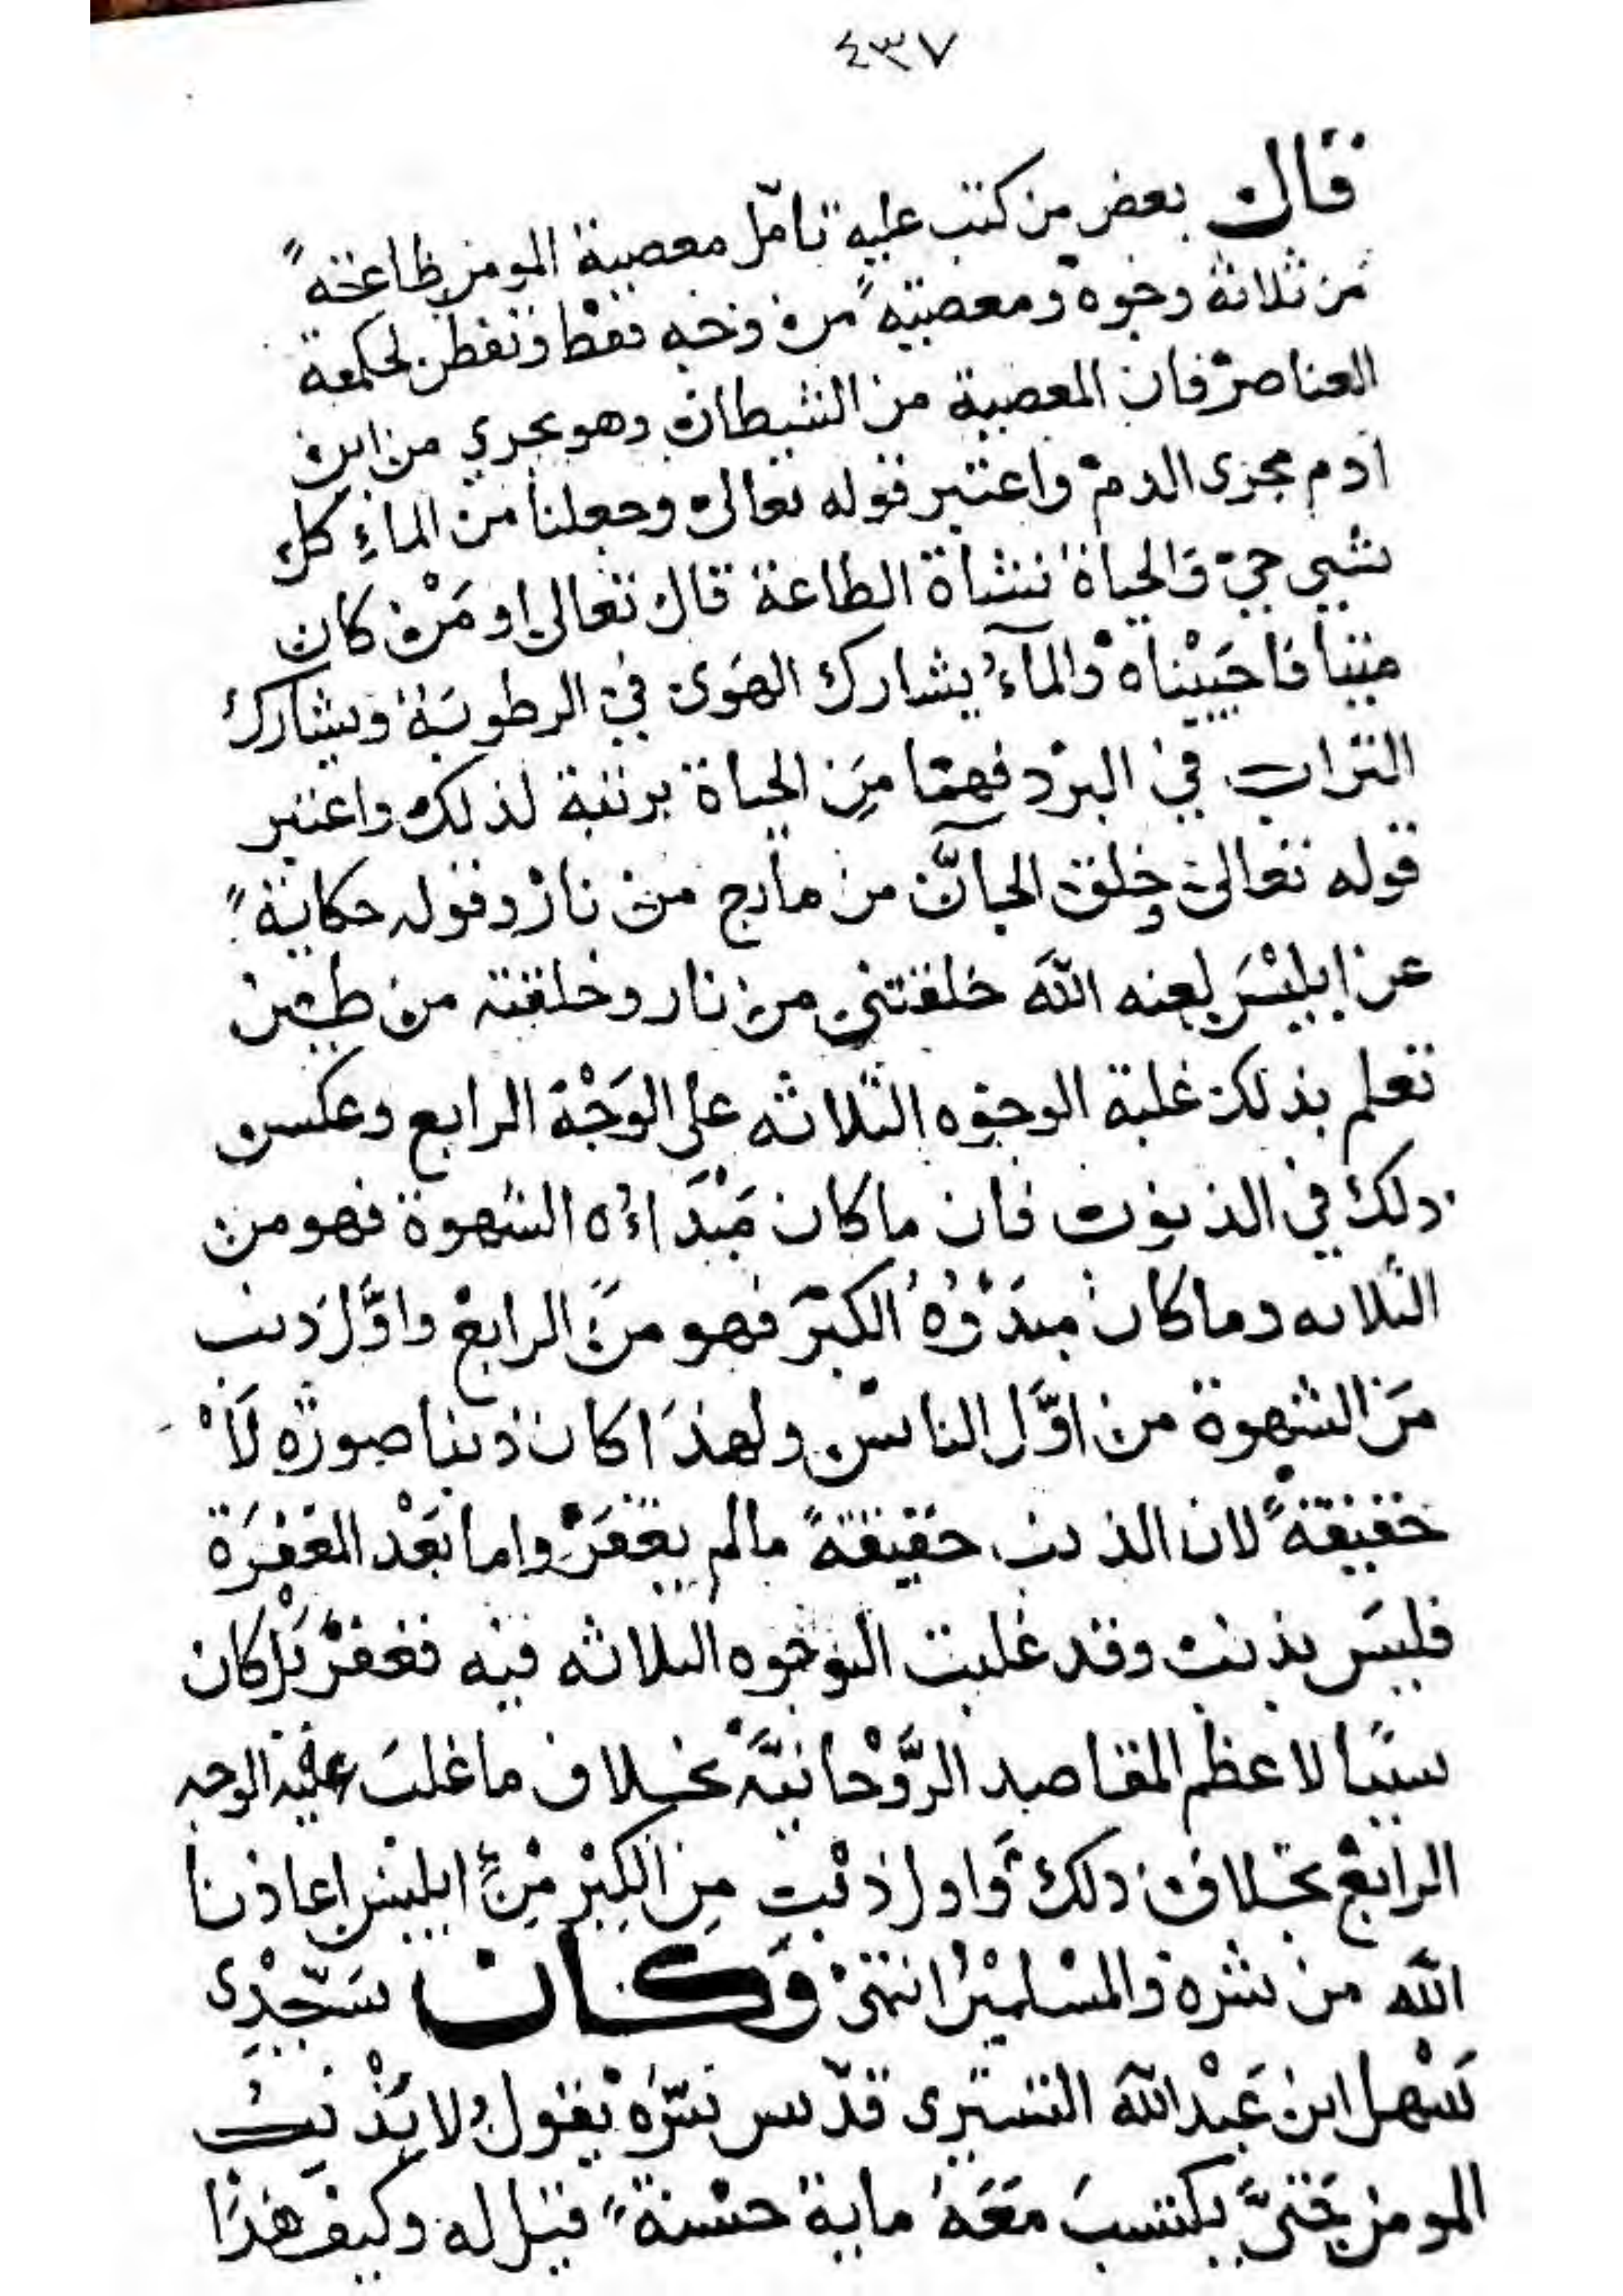 ٤٣٧
قال بعض من كتب عليه تامّل معصية المومن طاعةً
من ثلاثة وجوه ومعصيةً من وجه فقط وتفطن لحكمة
العناصر فان المعصية من الشيطان وهو يجري من ابن
ادم مجرى الدم واعتبر قوله تعالى وجعلنا من الماءِ كل
شيي حي والحياة نشاة الطاعة قال تعالى او مَن كان
ميتا فاحيَيْناه والمآءُ يشارك الهَوى في الرطوبَة ويشارك
التراب في البرد فهما مِنَ الحياة برتبة لذلك واعتبر
قوله تعالى وخلق الجآنّ من مارج من نار وقوله حكايةً
عن ابليْسَ لعنه اللّه خلقتني من نار وخلقته من طين
تعلم بذلك غلبة الوجوه الثلاثه على الوَجْه الرابع وعكس
ذلك في الذنوب فان ما كان مَبْدَاءُه الشهوة فهو من
الثلاثه وما كان مبدَؤُهُ الكبْر فهو من الرابع واوَّل ذنب
مَن الشهوة من اوَّل الناس ولهذَا كان ذنبا صورة لَا
حقيقةً لان الذنب حقيقةً مالم يغفَر واما بَعْد المغفرَة
فليسَ بذنب وقد غلبت الوجوه الثلاثه فيه فغفر بَل كان
سببًا لاعظم المقاصد الرَّوْحانيَّه بخلاف ما غلبَ فيه الوجه
الرابع بخلاف ذلك وَاول ذنبٍ مِن الكِبْر مِنْ ابليس اعاذنا
اللّه من شره والمسْلمين انتهى وَكان سَيّدِى
سَهل ابن عَبْد اللّه التستِرى قدّس سرّه يقول لا يذنبُ
المومن حَتىَّ يكتسبَ مَعَهُ ماية حسْنةً فقيل له وكيف هذَا